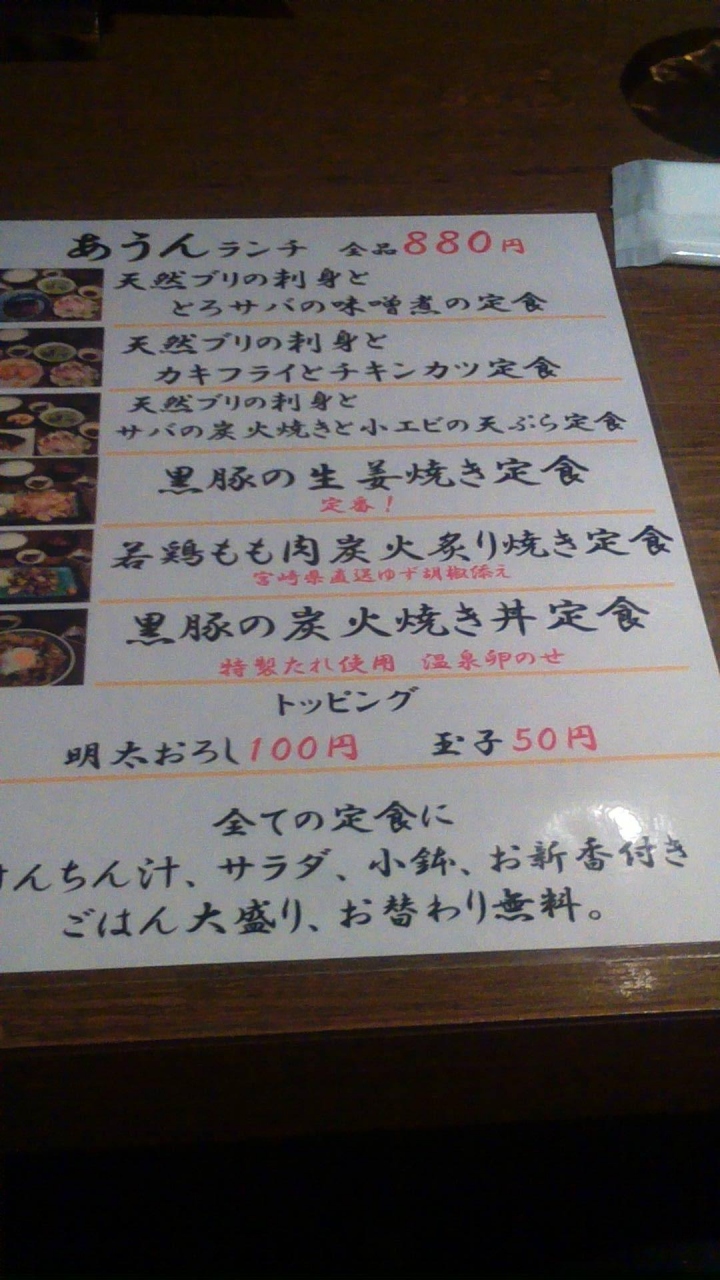 あうんランチ 全品880円
天然ブリの刺身と
とろサバの味噌煮の定食
天然ブリの刺身と
カキフライとチキンカツ定食
天然ブリの刺身と
サバの炭火焼きと小エビの天ぷら定食
黒豚の生姜焼き定食
定番！
若鶏もも肉炭火炙り焼き定食
宮崎県直送ゆず胡椒添え
黒豚の炭火焼き丼定食
特製たれ使用 温泉卵のせ
トッピング
明太おろし100円 玉子50円
全ての定食に
けんちん汁、サラダ、小鉢、お新香付き
ごはん大盛り、お替わり無料。